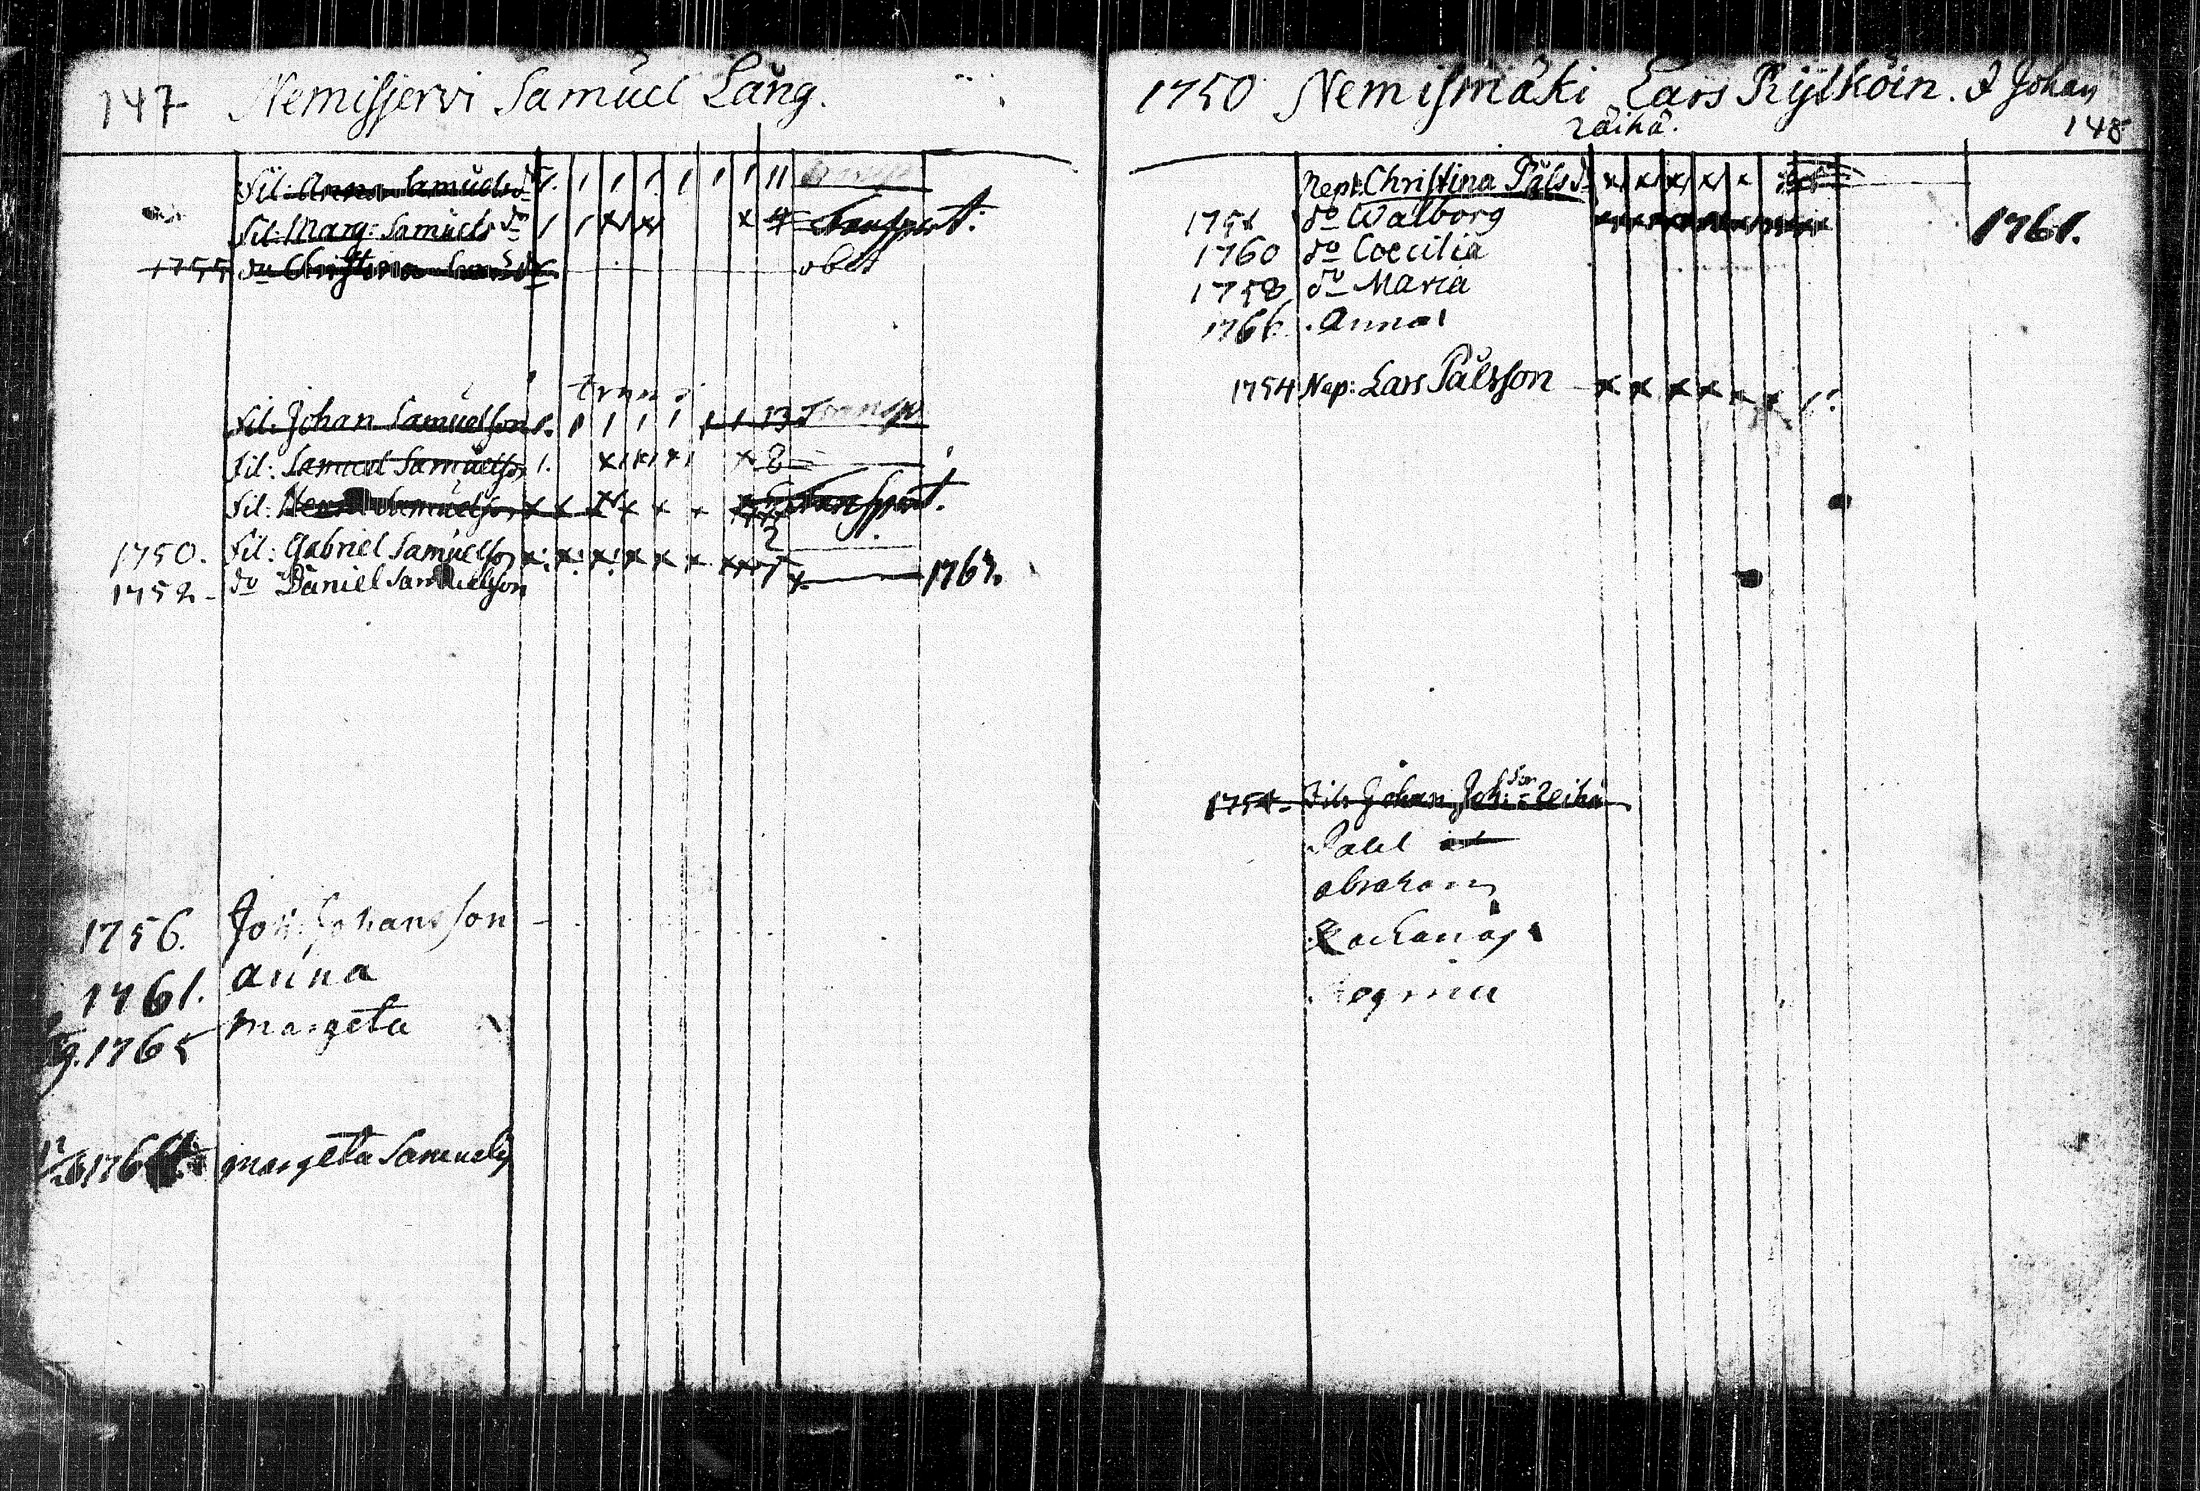 147 Nemisjervi Samuel Lång.
Fil: Anna Samuelsdr 1. 1 1 1 1 1 1 11
Fil: Marg: Samuelsdr 1 1 x x x 4 Transport.
1755 do Christina obiit
Fil: Johan Samuelsson 1. 1 1 1 1 1 1 13 Transp.
Fil: Samuel Samuelsson 1. x x x x 8
Fil: Samuelsson x x x x x x Transport.
1750. Fil: Gabriel Samuelsson x x x x x x 2
1752. do Daniel Samuelsson 1767.
1756. Joh: Johansson
1761. Anna
1765 Margeta
margeta Samuels
1750 Nemismäki Lars Rytköin. & Johan
Räihä. 148
Nept. Christina Pålsdr x x x x x
do Walborg 1761.
1760 do Coecilia
1758 do Maria
1766. Anna
1754 Nep: Lars Pålsson x x x x x x
1754. Fil: Johan Joh:son Reihä
Påhl
abraham
Zacharias
Regina